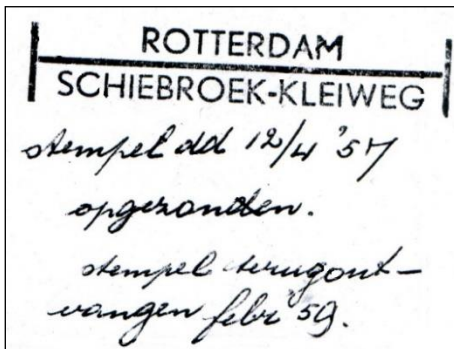 ROTTERDAM
SCHIEBROEK-KLEIWEG
stempel dd 12/4 '57
opgezonden.
stempel terugont-
vangen febr '59.